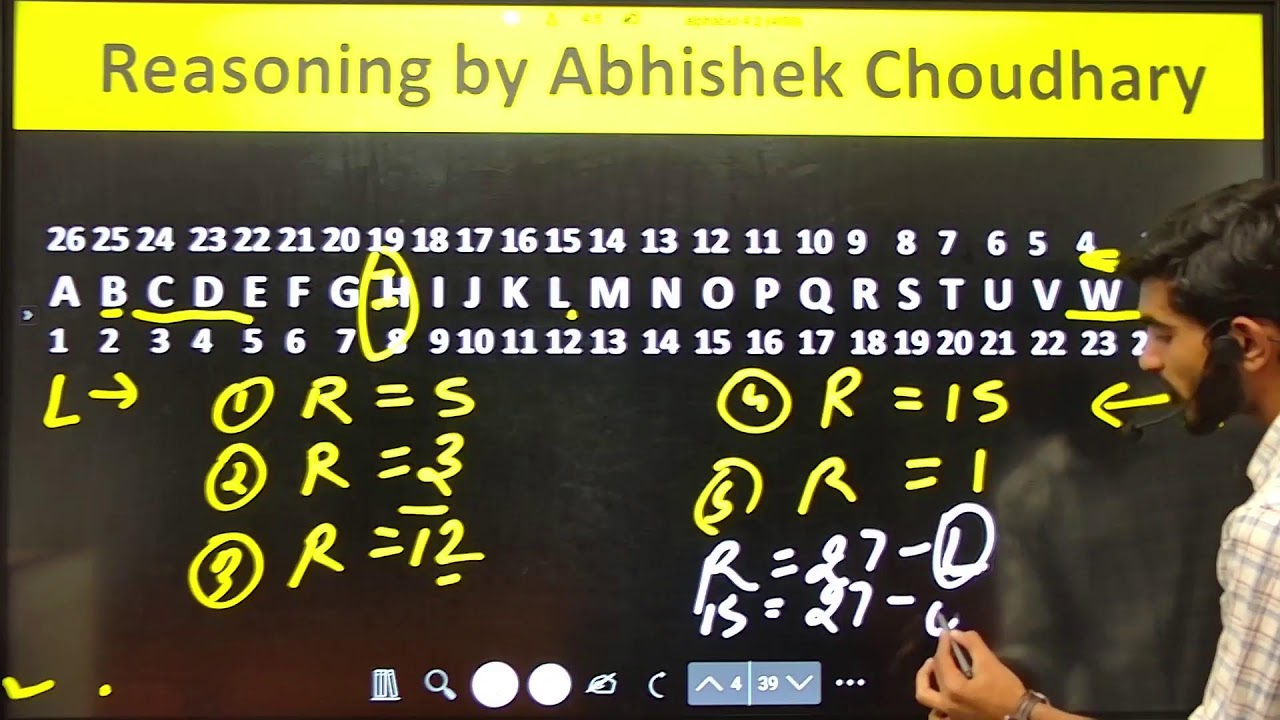 Reasoning by Abhishek Choudhary
26 25 24 23 22 21 20 19 18 17 16 15 14 13 12 11 10 9 8 7 6 5 4
A B C D E F G H I J K L M N O P Q R S T U V W
1 2 3 4 5 6 7 8 9 10 11 12 13 14 15 16 17 18 19 20 21 22 23 2
L →
① R = 5
② R = 3
③ R = 12
④ R = 15 ←
⑤ R = 1
R = 27 - L
15 = 27 -
4 39